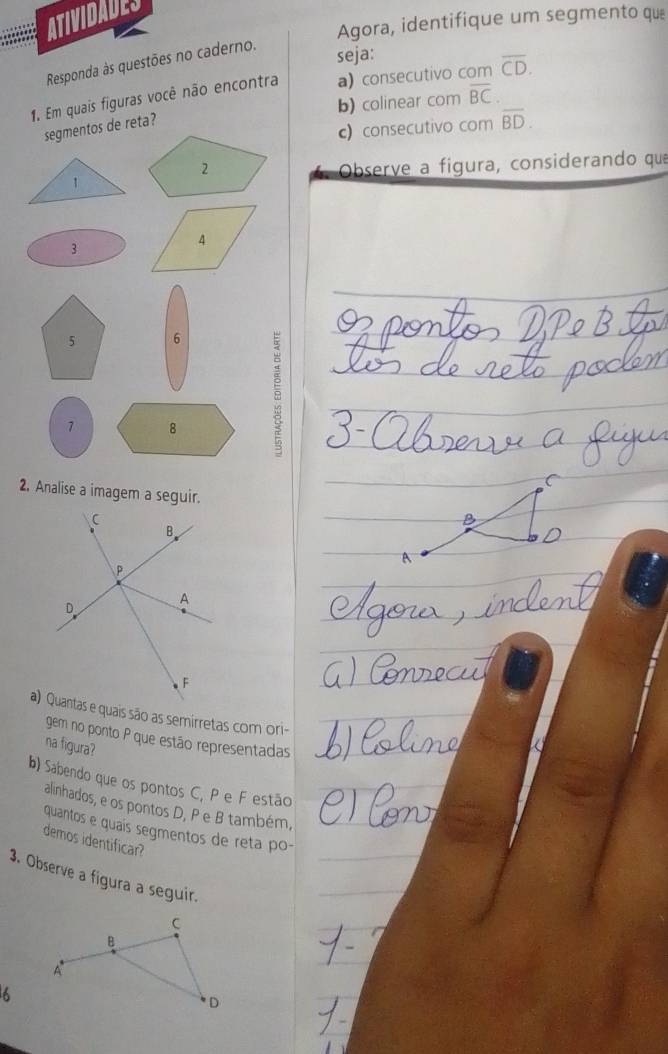 ATIVIDADES
Responda às questões no caderno.
1. Em quais figuras você não encontra
segmentos de reta?
1
2
3
4
5
6
7
8
ILUSTRAÇÕES: EDITORIA DE ARTE
2. Analise a imagem a seguir.
C
B
P
D
A
F
a) Quantas e quais são as semirretas com ori-
gem no ponto P que estão representadas
na figura?
b) Sabendo que os pontos C, P e F estão
alinhados, e os pontos D, P e B também,
quantos e quais segmentos de reta po-
demos identificar?
3. Observe a figura a seguir.
C
B
A
D
16
Agora, identifique um segmento que
seja:
a) consecutivo com CD.
b) colinear com BC.
c) consecutivo com BD.
4. Observe a figura, considerando que
os pontos D, P e B ta
tos de reta podem
3- Observe a figur
C
B
A
D
Agora, indent
a) Consecut
b) Coline
c) Cons
1-
1-